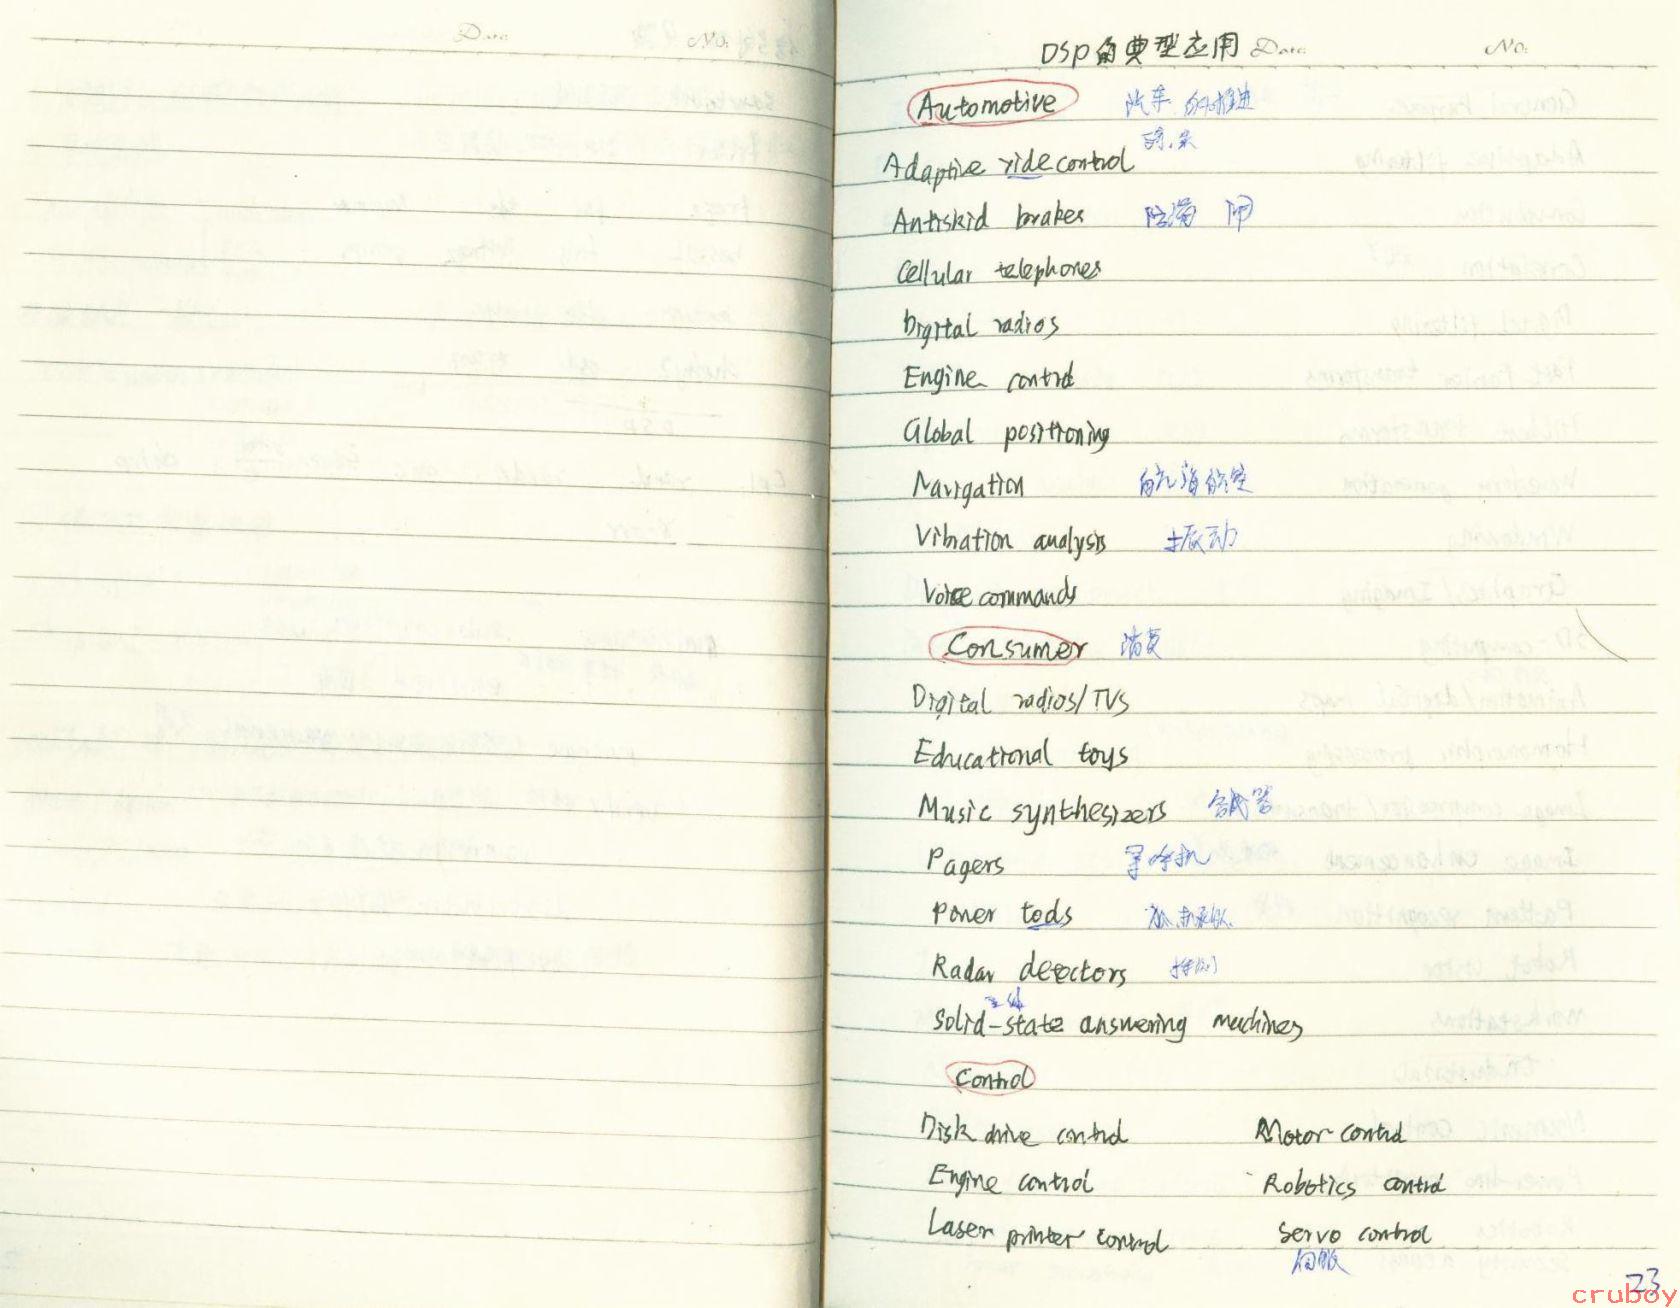 DSP的典型应用 Date No.
Date No.
Automotive 汽车 自动推进
骑.乘
Adaptive ride control
Antiskid brakes 防滑 闸
Cellular telephones
Digital radios
Engine control
Global positioning
Navigation 航海航空
Vibration analysis 振动
Voice commands
Consumer 消费
Digital radios/TVs
Educational toys
Music synthesizers 合成器
Pagers 寻呼机
Power tools
Radar detectors 探测
Solid-state answering machines
Control
Disk drive control Motor control
Engine control Robotics control
Laser printer control Servo control
伺服
23
cruboy